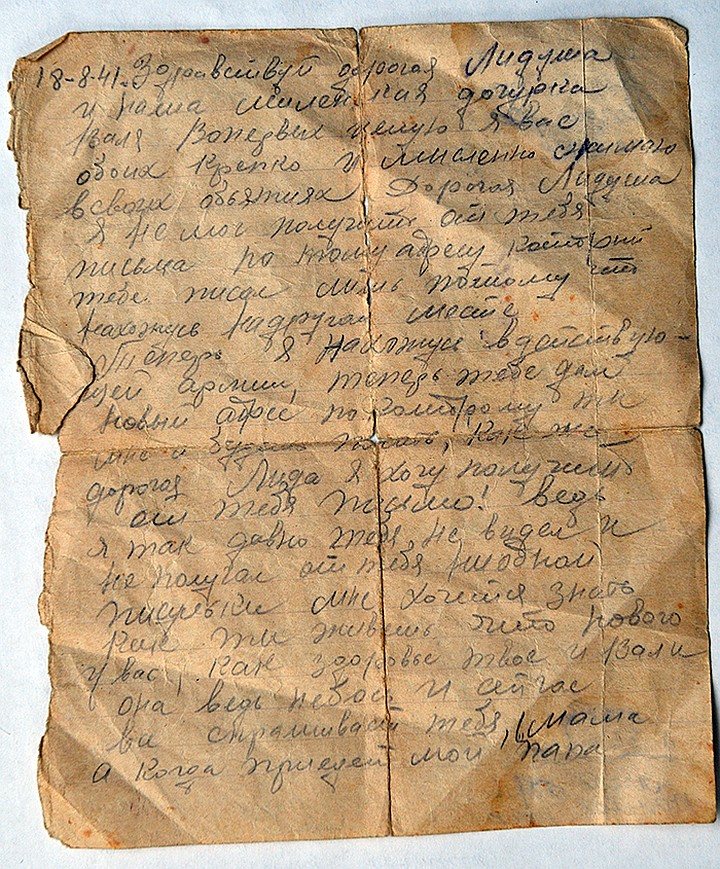 18-8-41. Здравствуй дорогая Лидуша
и наша миленькая дочурка
Валя Вопервых целую я вас
обоих крепко и мысленно сжимаю
всвоих обьятиях Дорогая Лидуша
я не мог получить от тебя
письма по тому адресу который
тебе писал лишь потому что
нахожусь надругом месте
Теперь я нахожусь вдействую-
щей армии, теперь тебе дам
новый адрес покоторому ты
мне и будешь писать, как же
дорогая Лида я хочу получить
от тебя письмо! ведь
я так давно тебя не видел и
не получал от тебя ниодной
писульки мне хочется знать
как ты живешь что нового
у вас, как здоровье твое и Вали
она ведь небось и сейчас
спрашивает тебя, "Мама
а когда приедет мой папа